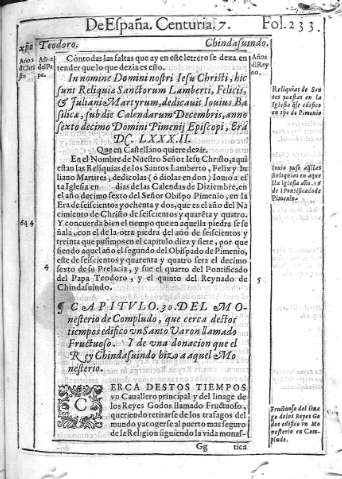 De España. Centuria. 7.
Fol. 233.
xpo̅ Teodoro.
Chindasuindo.
Cōtodas las faltas que ay en este letrero se dexa en
tender que lo que dezia es esto.
In nomine Domini nostri Iesu Christi, hic
sunt Reliquia Sanctorum Lamberti, Felicis,
& Iuliani Martyrum, dedicauit Iouius Ba
silica, sub die Calendarum Decembris, anno
sexto decimo Domini Pimenij Episcopi, Era
DC. LXXX.II.
Que en Castellano quiere dezir.
En el Nombre de Nuestro Señor Iesu Christo, aqui
estan las Reliquias de los Santos Lamberto, Felix y Iu
liano Martires, dedicolas (o diolas en don) Iouio a es
ta Iglesia en dias de las Calendas de Diziembre, en
el año decimo sexto del Señor Obispo Pimenio, en la
Era de seiscientos y ochenta y dos, que es el año del Na
cimiento de Christo de seiscientos y quarēta y quatro.
Y concuerda bien el tiempo que en aquella piedra se se
ñala, con el de la otra piedra del año de seiscientos y
treinta que pusimos en el capitulo diez y siete, por que
siendo aquel año el segundo del Obispado de Pimenio,
este de seiscientos y quarenta y quatro sera el decimo
sexto de su Prelacia, y fue el quarto del Pontificado
del Papa Teodoro, y el quinto del Reynado de
Chindasuindo.
644
4
5
¶ CAPITVLO. 30. DEL Mo-
nesterio de Compludo, que cerca destos
tiempos edifico vn Santo Varon llamado
Fructuoso. Y de vna donacion que el
Rey Chindasuindo hizo a aquel Mo
nesterio.
CERCA DESTOS TIEMPOS
vn Cauallero principal y del linage de
los Reyes Godos llamado Fructuoso,
queriendo retirarse de los trafagos del
mundo y acogerse al puerto mas seguro
de la Religion siguiendo la vida monas-
Gg
tica
Años
de Chri
sto
Años
del Pa
pa.
Años
di Rey
no.
Reliquias de San
tos puestas en la
Iglesia q̄ se edifico
en tpo de Pimenio
Iouio puso aq̄llas
Reliquias en aque
lla Iglesia año. 16
de l Pontificado de
Pimenio.
Fructuoso del lina
ge de los Reyes Go
dos edifico vn Mo
nesterio en Com-
pludo.